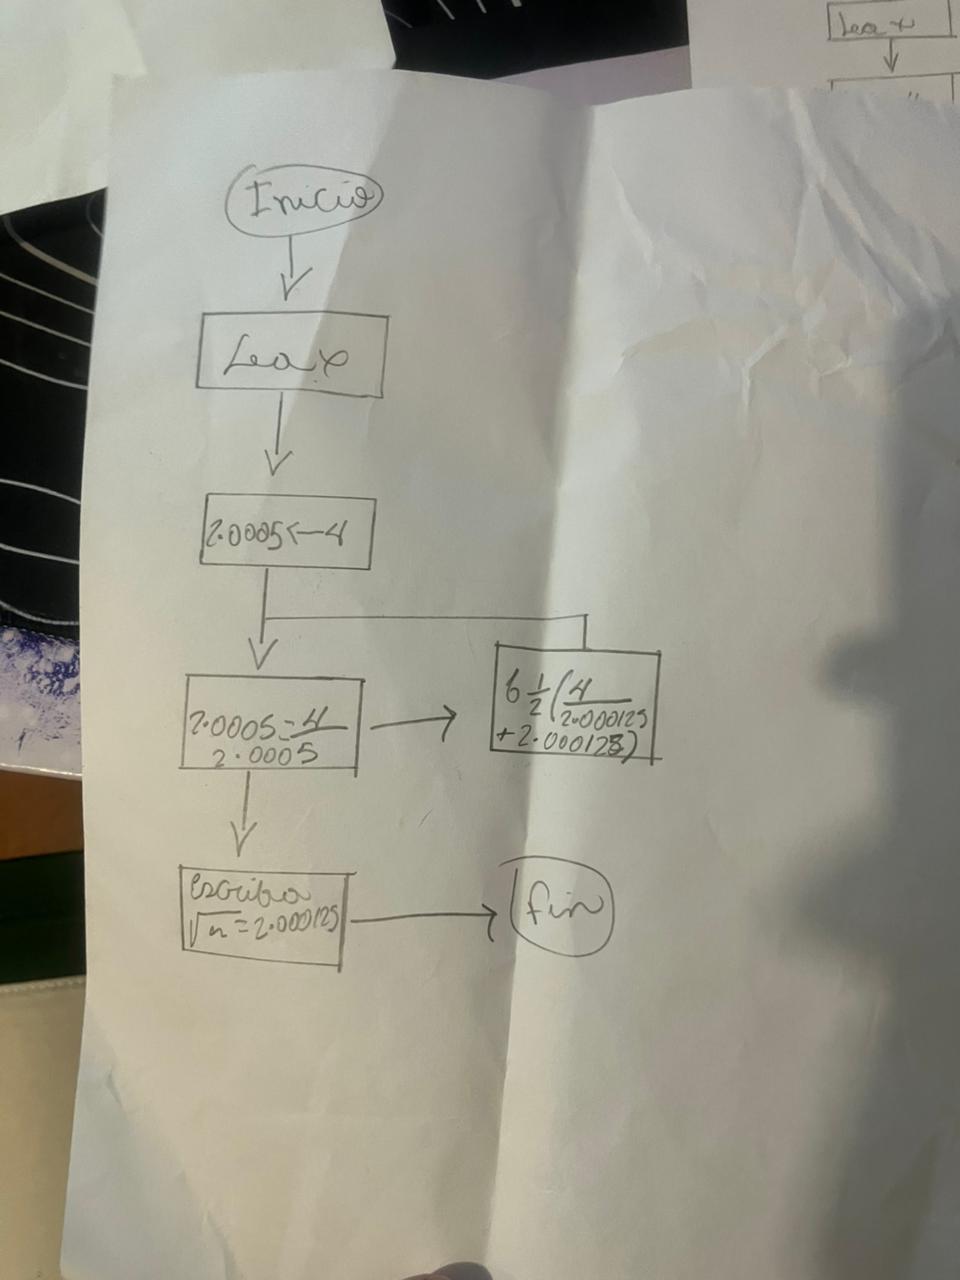 Lea x
Inicio
Lea x
2.0005←4
2.0005=4/
2.0005
6 1/2 (4/
2.000125
+2.000125)
escriba
√n=2.000125
fin